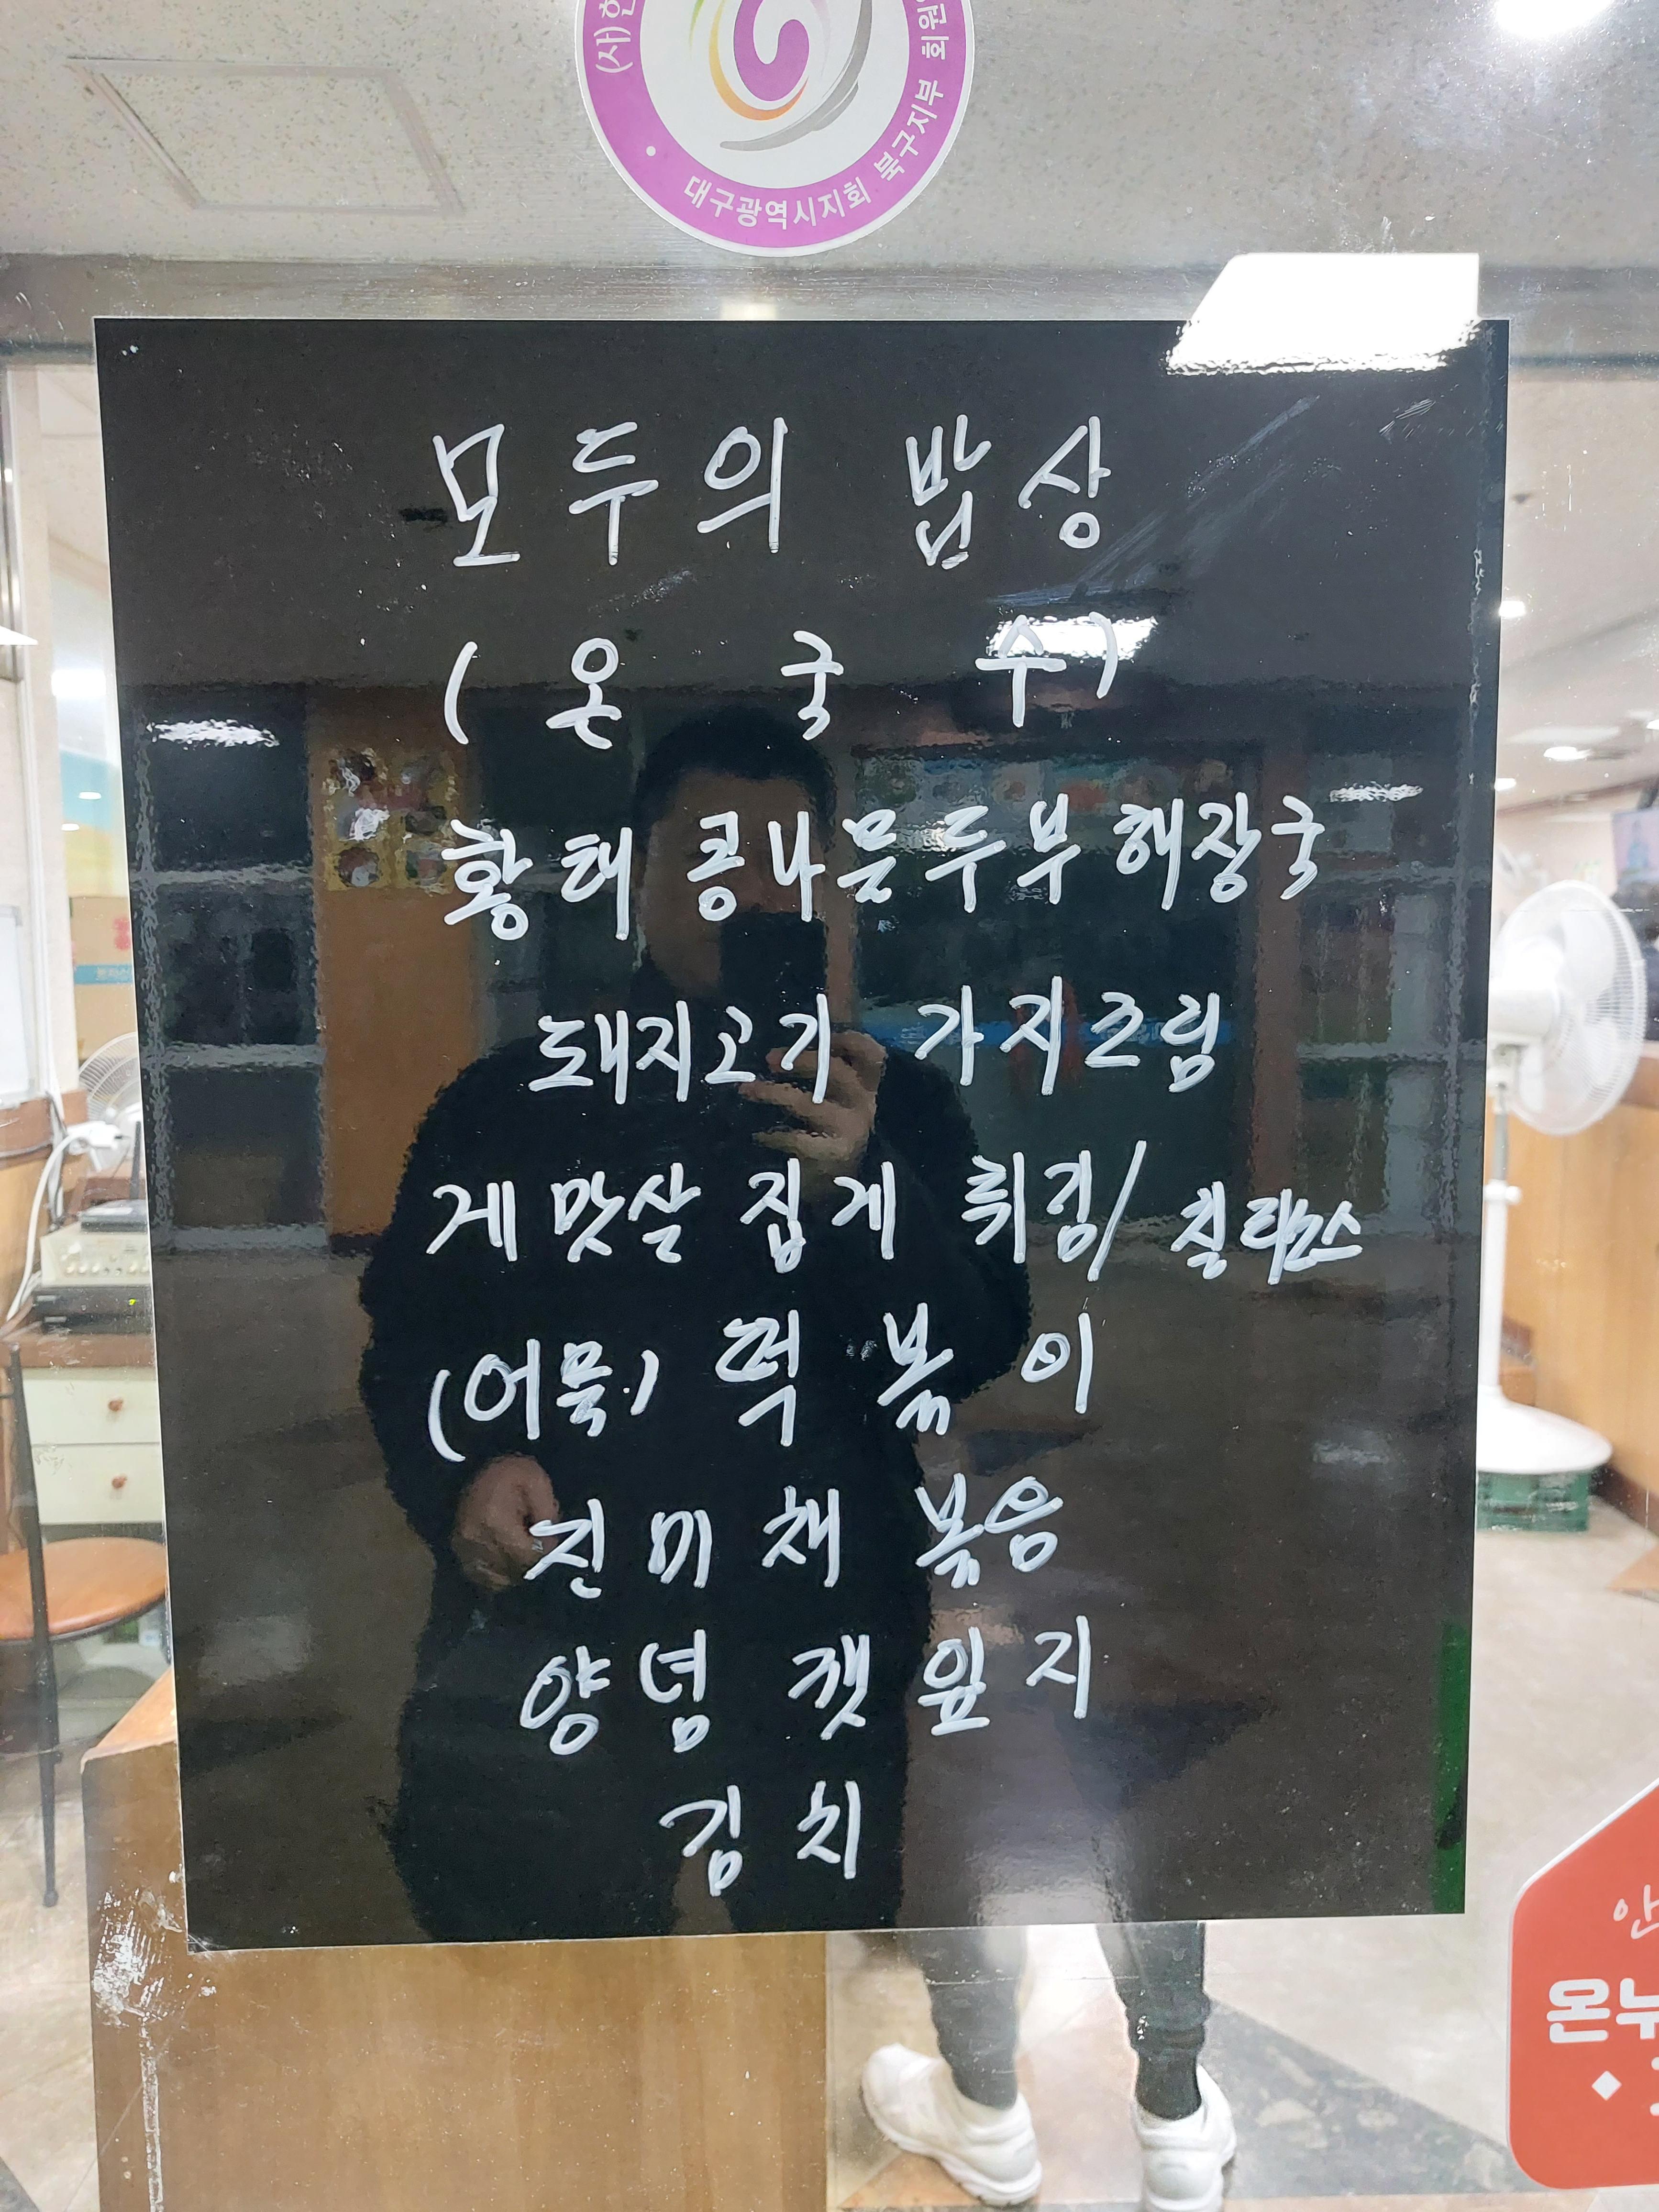 (사)한
대구광역시지회 북구지부 회원
모두의 밥상
(온 국 수)
황태 콩나물두부해장국
돼지고기 가지크림
게맛살 집게 튀김/칠리소스
(어묵) 떡 볶 이
진미채 볶음
양념 깻잎지
김치
안
온누